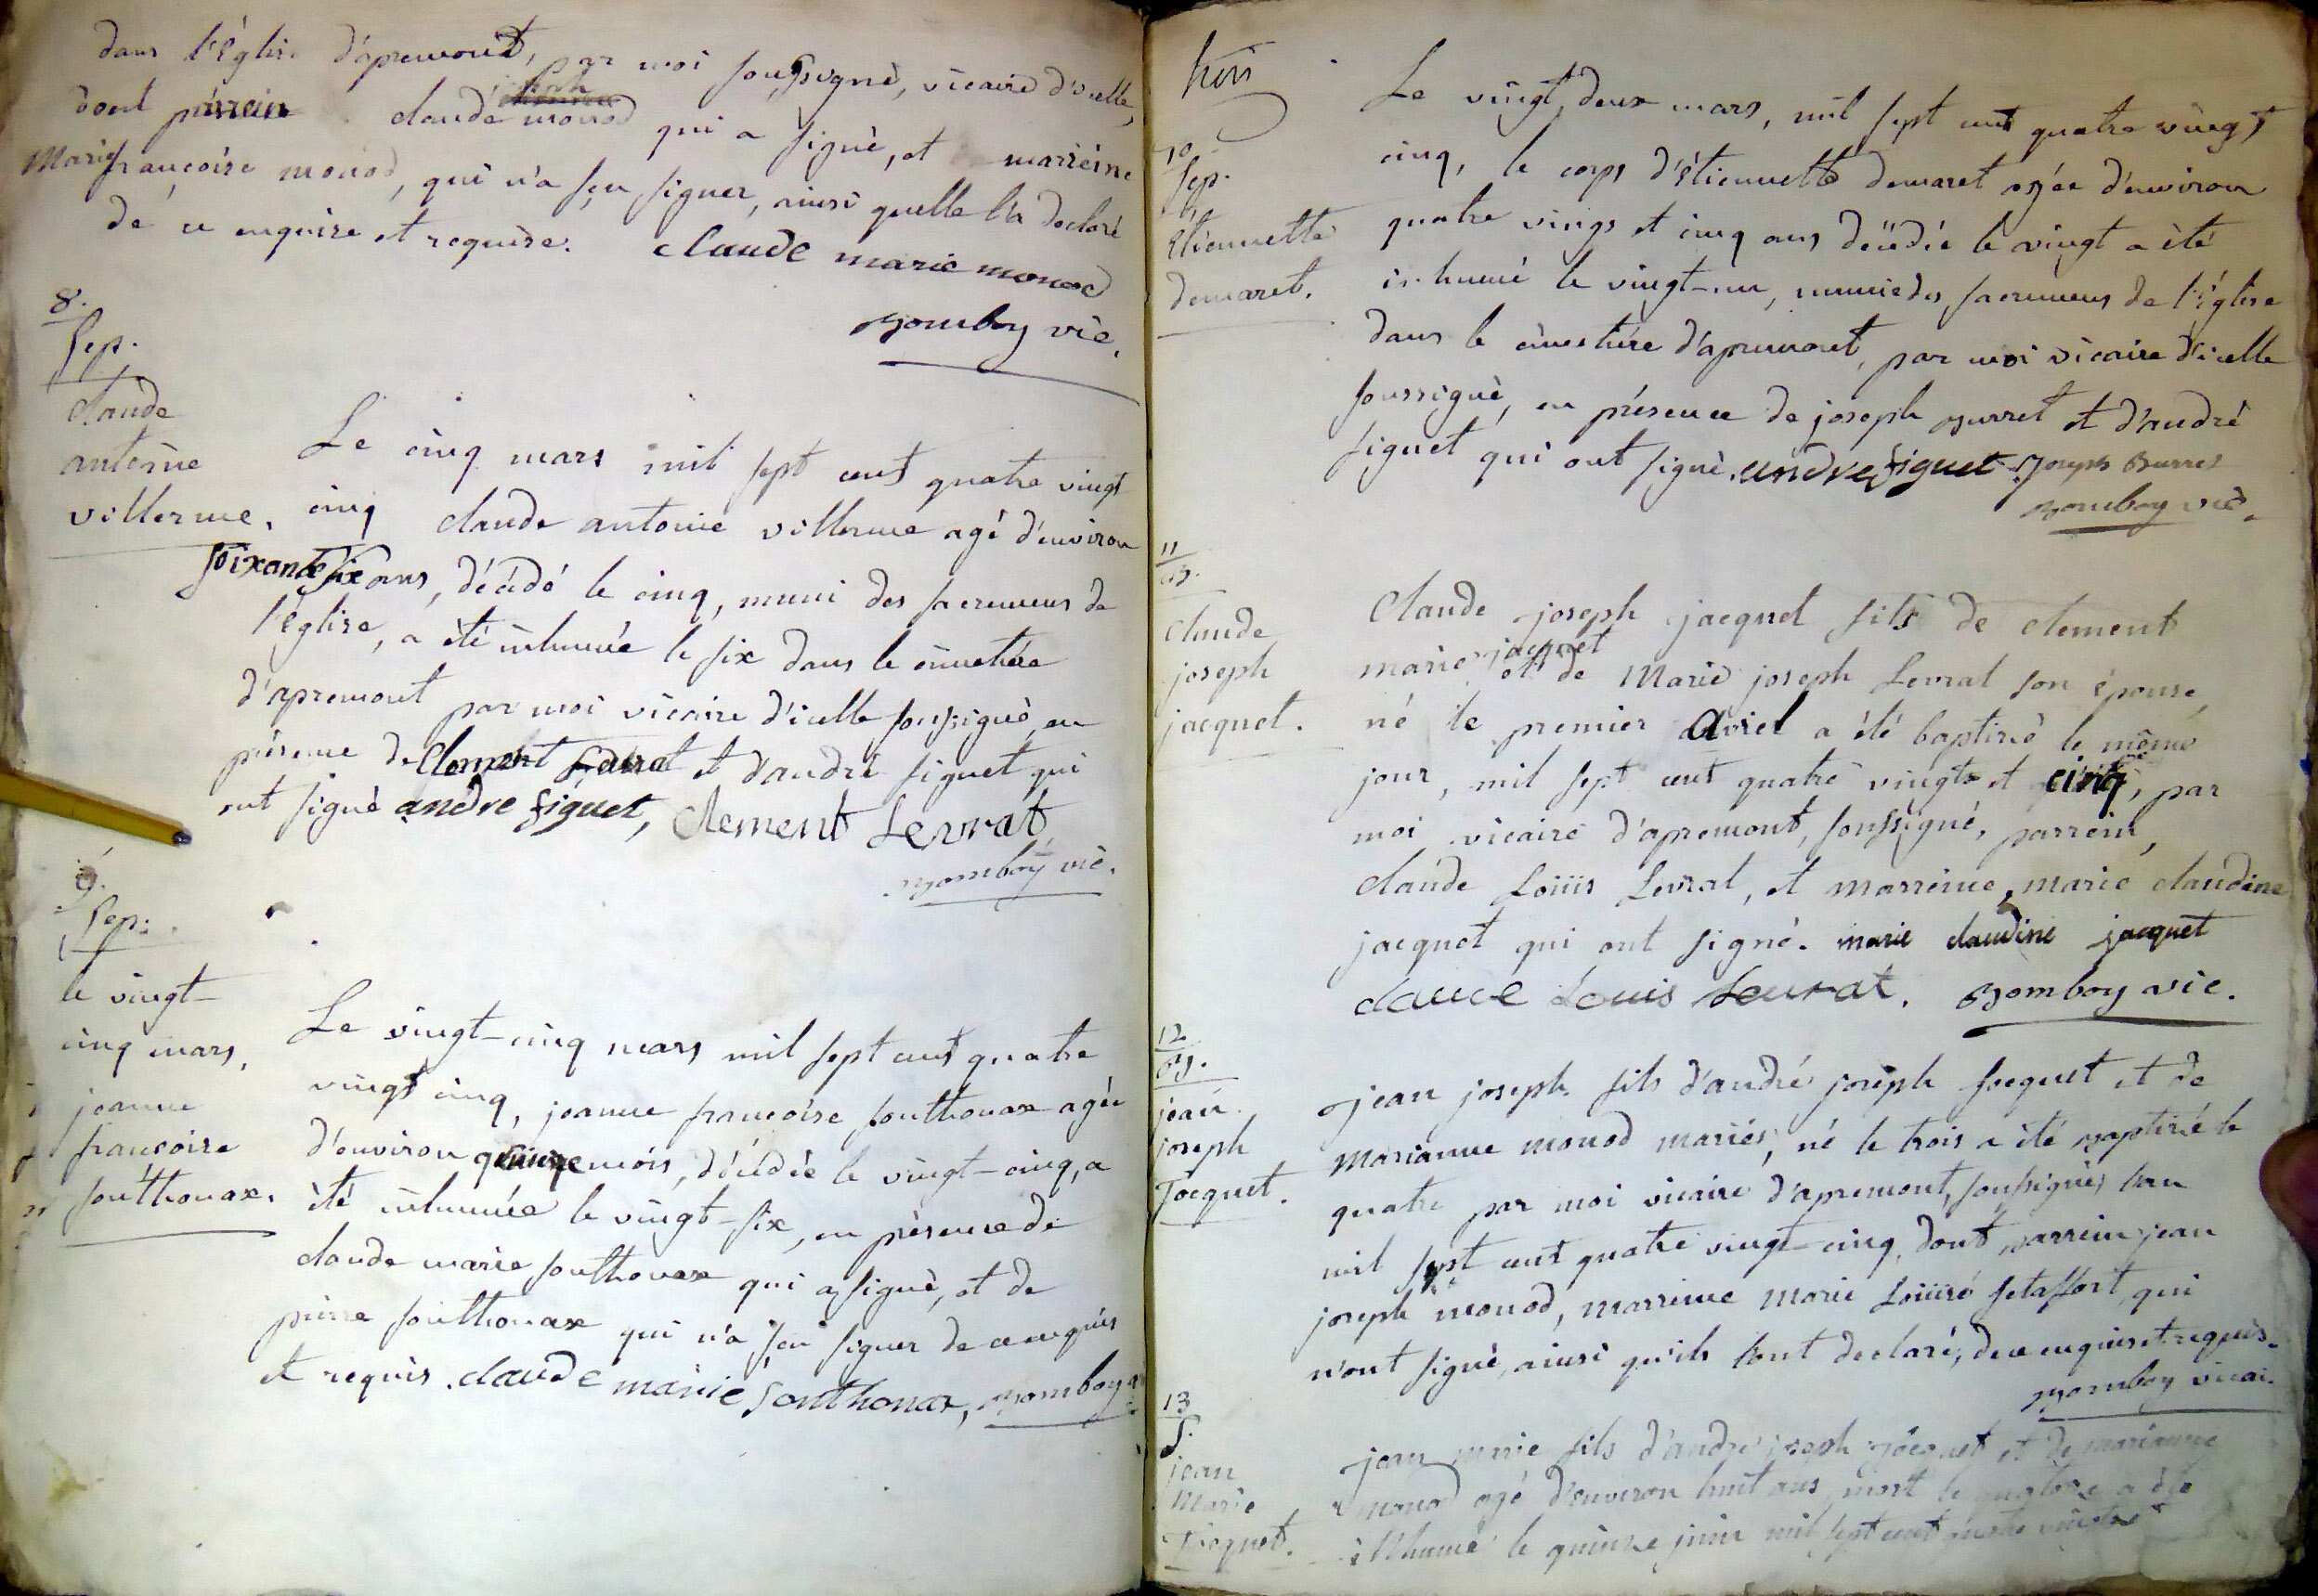 dans l'Église d'apremont, par moi soussigné, vicaire d'icelle,
dont parrain claude monod qui a signé, et marréine
Marie françoise monod, qui n'a sçu signer, ainsi quelle l'a declaré
de ce enquise et requise. claude marie monod
Bomboy vic.
8.
sep.
claude
antoine
villerme.
Le cinq mars mil sept cent quatre vingt
cinq claude antoine villerme agé d'environ
soixante six ans, décédé le cinq, muni des sacremens de
l'église, a été inhumée le six dans le cimetière
d'apremont par moi vicaire d'icelle soussigné, en
présence de Clement Levrat et d'andré figuet qui
ont signé andre figuet, Clement Levrat
Bomboy vic.
9.
sep.
le vingt-
cinq mars,
jeanne
françoise
sonthonax.
Le vingt-cinq mars mil sept cent quatre
vingt cinq, jeanne françoise sonthonax agée
d'environ quinze mois, décédée le vingt-cinq, a
été inhumée le vingt-six, en présence de
claude marie sonthonax qui a signé, et de
pierre sonthonax qui n'a sçu signer de ce enquis
et requis. claude marie sonthonax, Bomboy
10
sep.
Étiennette
demaret.
Le vingt deux mars, mil sept cent quatre vingt
cinq, le corps d'étiennette demaret agée d'environ
quatre vings et cinq ans décédée le vingt a été
inhumé le vingt-un, munie des sacremens de l'Église
dans le cimetière d'apremont, par moi vicaire d'icelle
soussigné, en présence de joseph Burret et d'andré
figuet qui ont signé. andre figuet. Joseph Burret
Bomboy vic.
11
B.
Claude
joseph
jacquet.
Claude joseph jacquet fils de clement
marie jacquet et de Marie joseph Levrat son épouse,
né le premier Avril a été baptisé le même
jour, mil sept cent quatre vingts et cinq, par
moi vicaire d'apremont, soussigné, parrein,
claude Loüis Levrat, et marreine, marie claudine
jacquet qui ont signé. marie claudine jacquet
claude Louis Levrat. Bomboy vic.
12
B.
jean
joseph
Jocquet.
jean joseph fils d'andré joseph Jocquet et de
Marianne monod mariés, né le trois a été baptisé le
quatre par moi vicaire d'apremont, soussigné, l'an
mil sept cent quatre vingt-cinq, dont parrein jean
joseph monod, marreine marie Loüise qui
n'ont signé, ainsi qu'ils l'ont declaré, de ce enquis et requis.
Bomboy vicai.
13
S.
jean
Marie
Jocquet.
jean marie fils d'andré joseph Jocquet et de marianne
monod agé d'environ huit ans, mort le quatorze a été
inhumé le quinze juin mil sept cent quatre